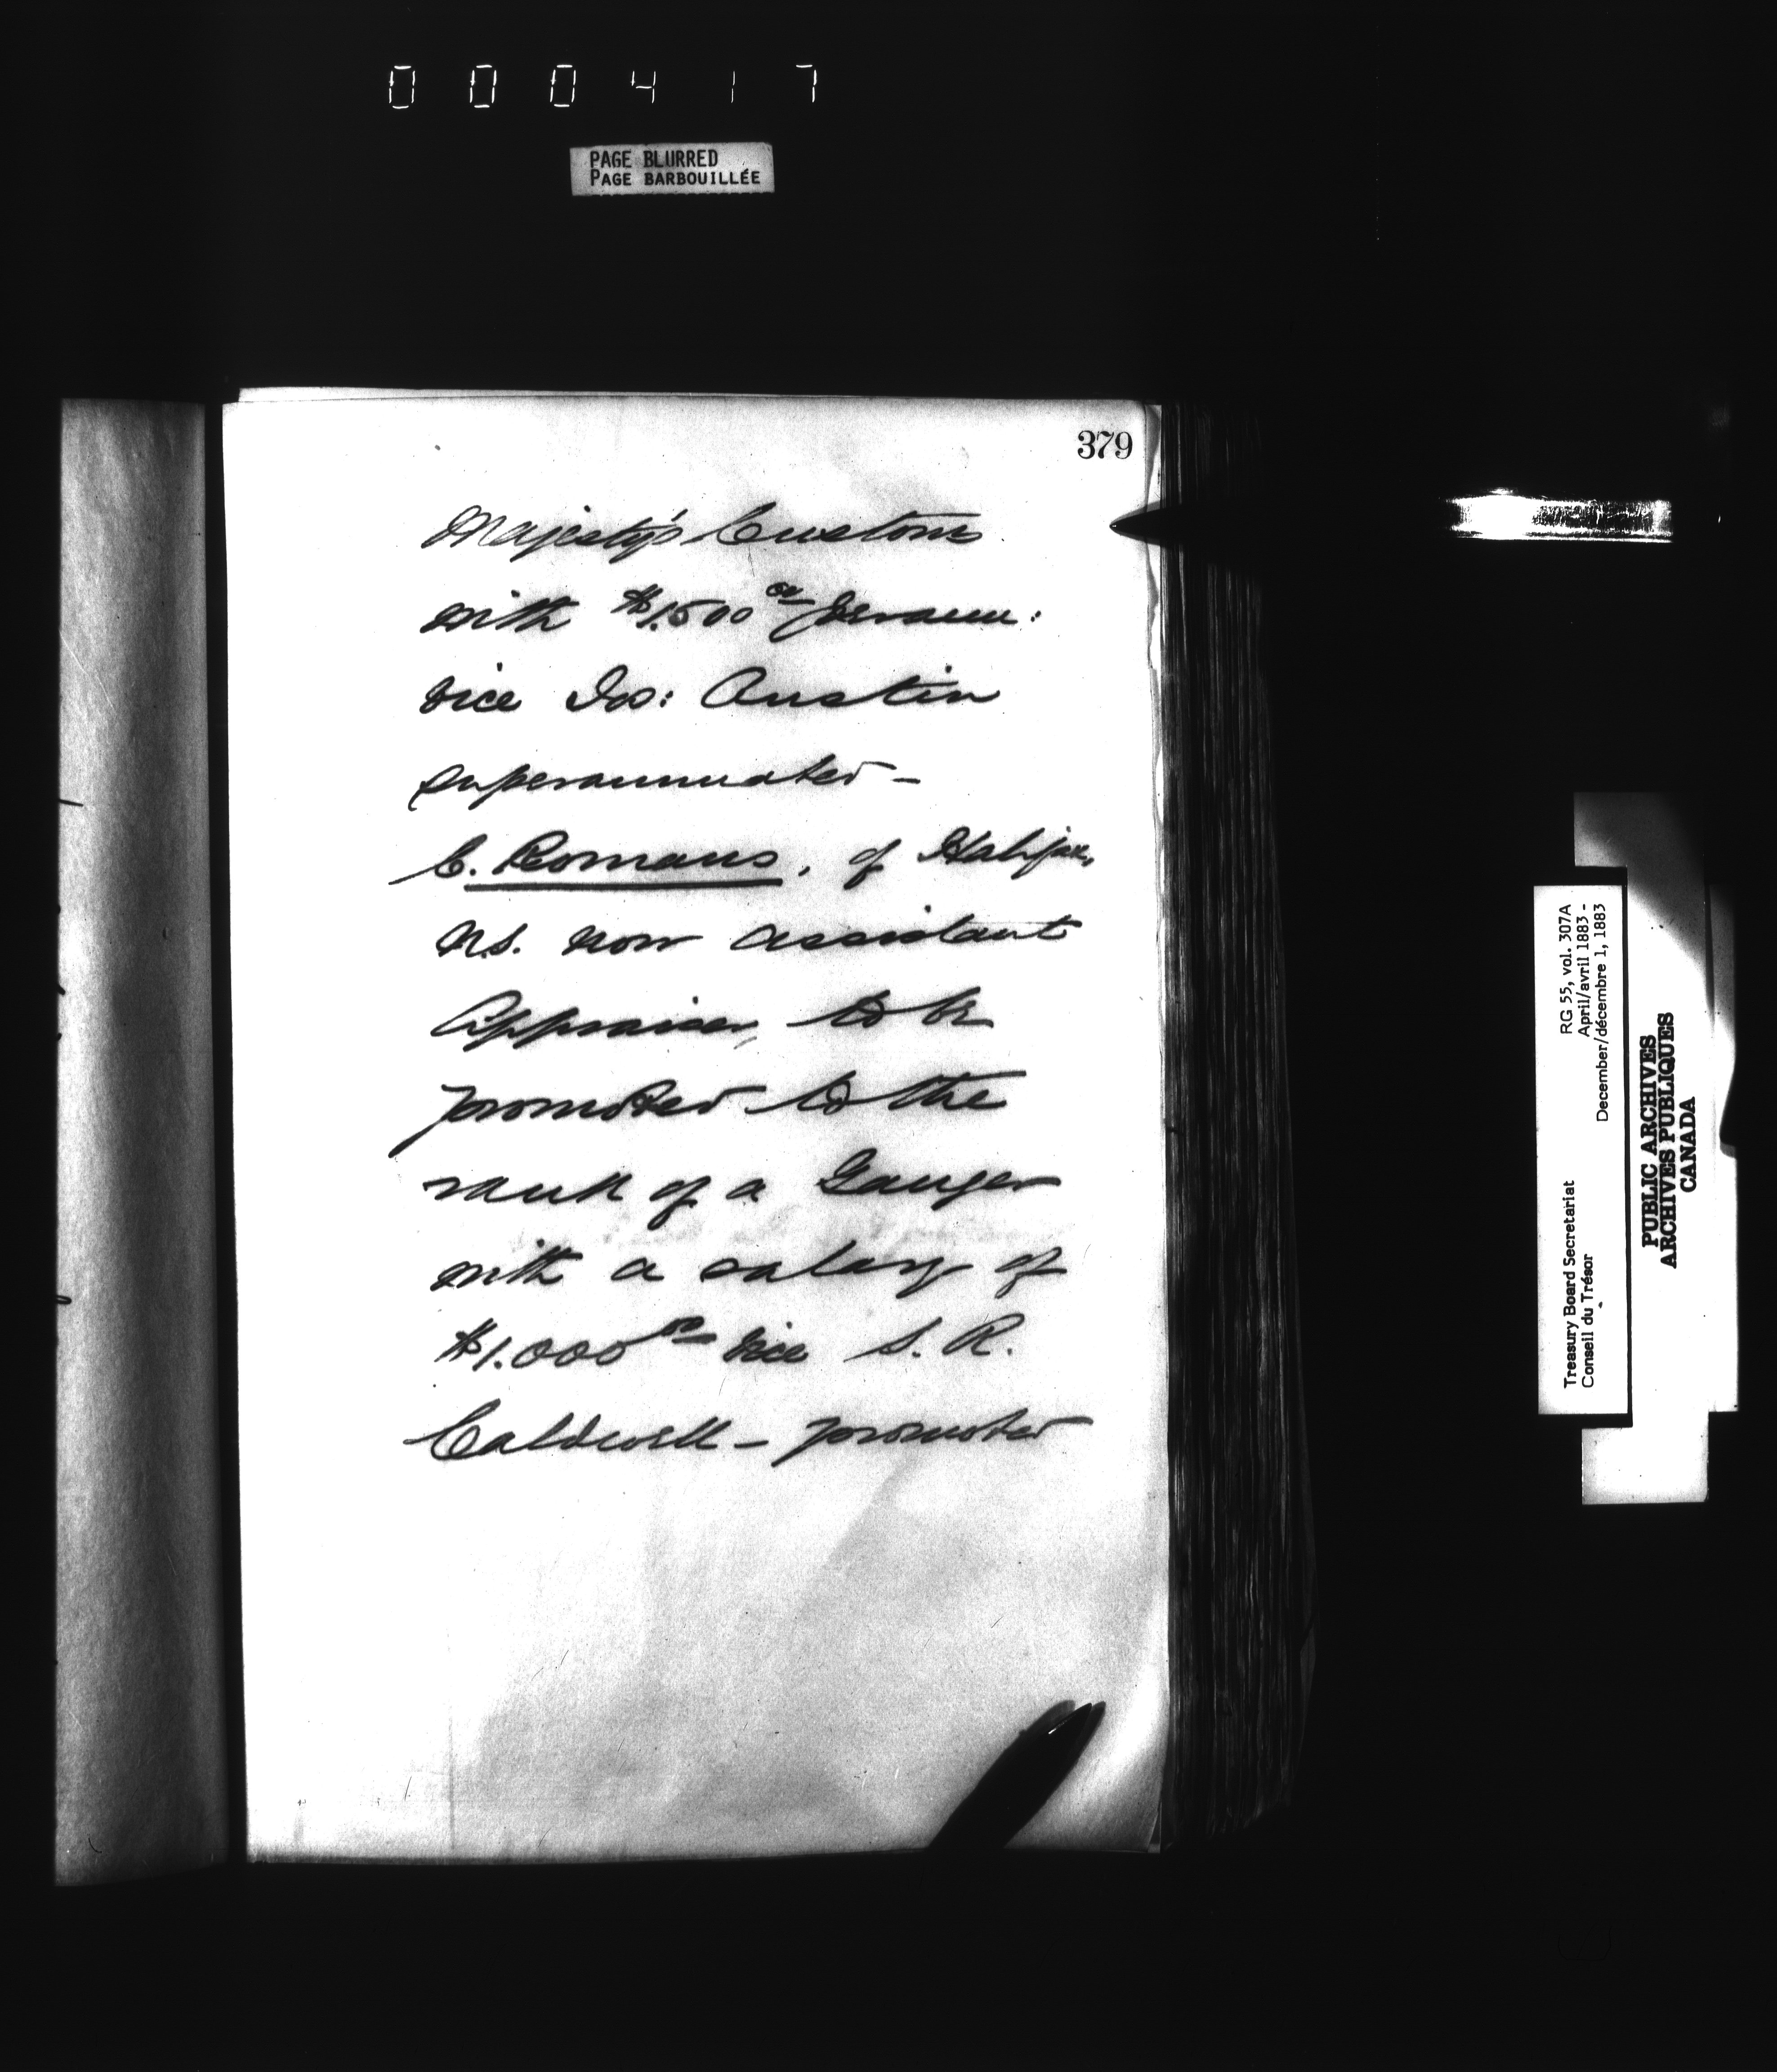 000417
PAGE BLURRED
PAGE BARBOUILLÉE
379
Majesty's Customs
with $1.500 00 per annum:
vice Jos: Austin
superannuated –
C. Romans, of Halifax,
N.S. now assistant
Appraiser, to be
promoted to the
rank of a Gauger
with a salary of
$1.000 00 vice S. R.
Caldwell – promoted
Treasury Board Secretariat RG 55, vol. 307A
Conseil du Trésor April/avril 1883 -
December/décembre 1, 1883
PUBLIC ARCHIVES
ARCHIVES PUBLIQUES
CANADA